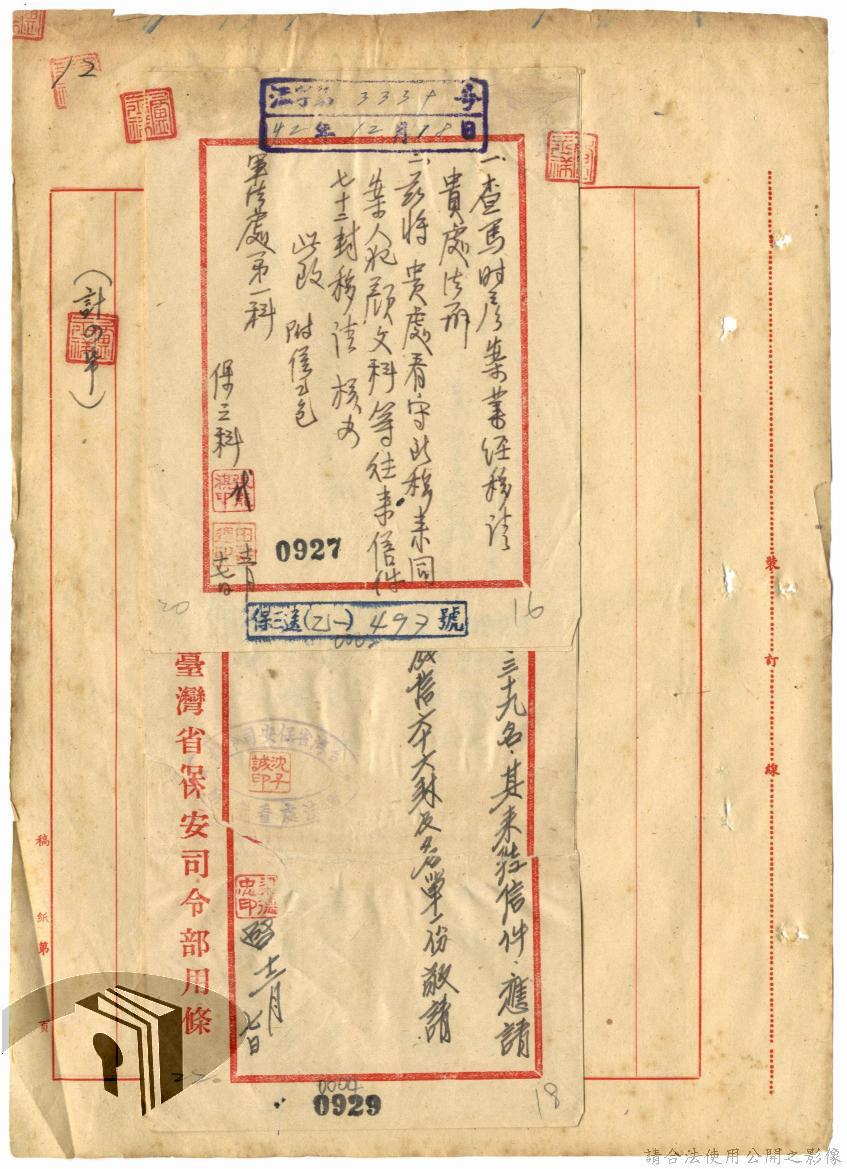 12
江字第 3334 號
42年12月18日
一、查馬時彥案業經移請
貴處法辦
二、茲將 貴處看守所移來同
案人犯顏文科等往來信件
七十二封移請 核辦
此致 附信一包
軍法處第一科
保三科 代
十二月
十七日
0927
20
16
保三送(乙一)497號
三十九名·其來往信件·應請
信六十六封及名單一份敬請
臺灣省保安司令部用條
沈子誠印
啓 十二月七日
0004
0929
22
18
(計四第)
裝
訂
線
稿
紙
第
頁
請合法使用公開之影像